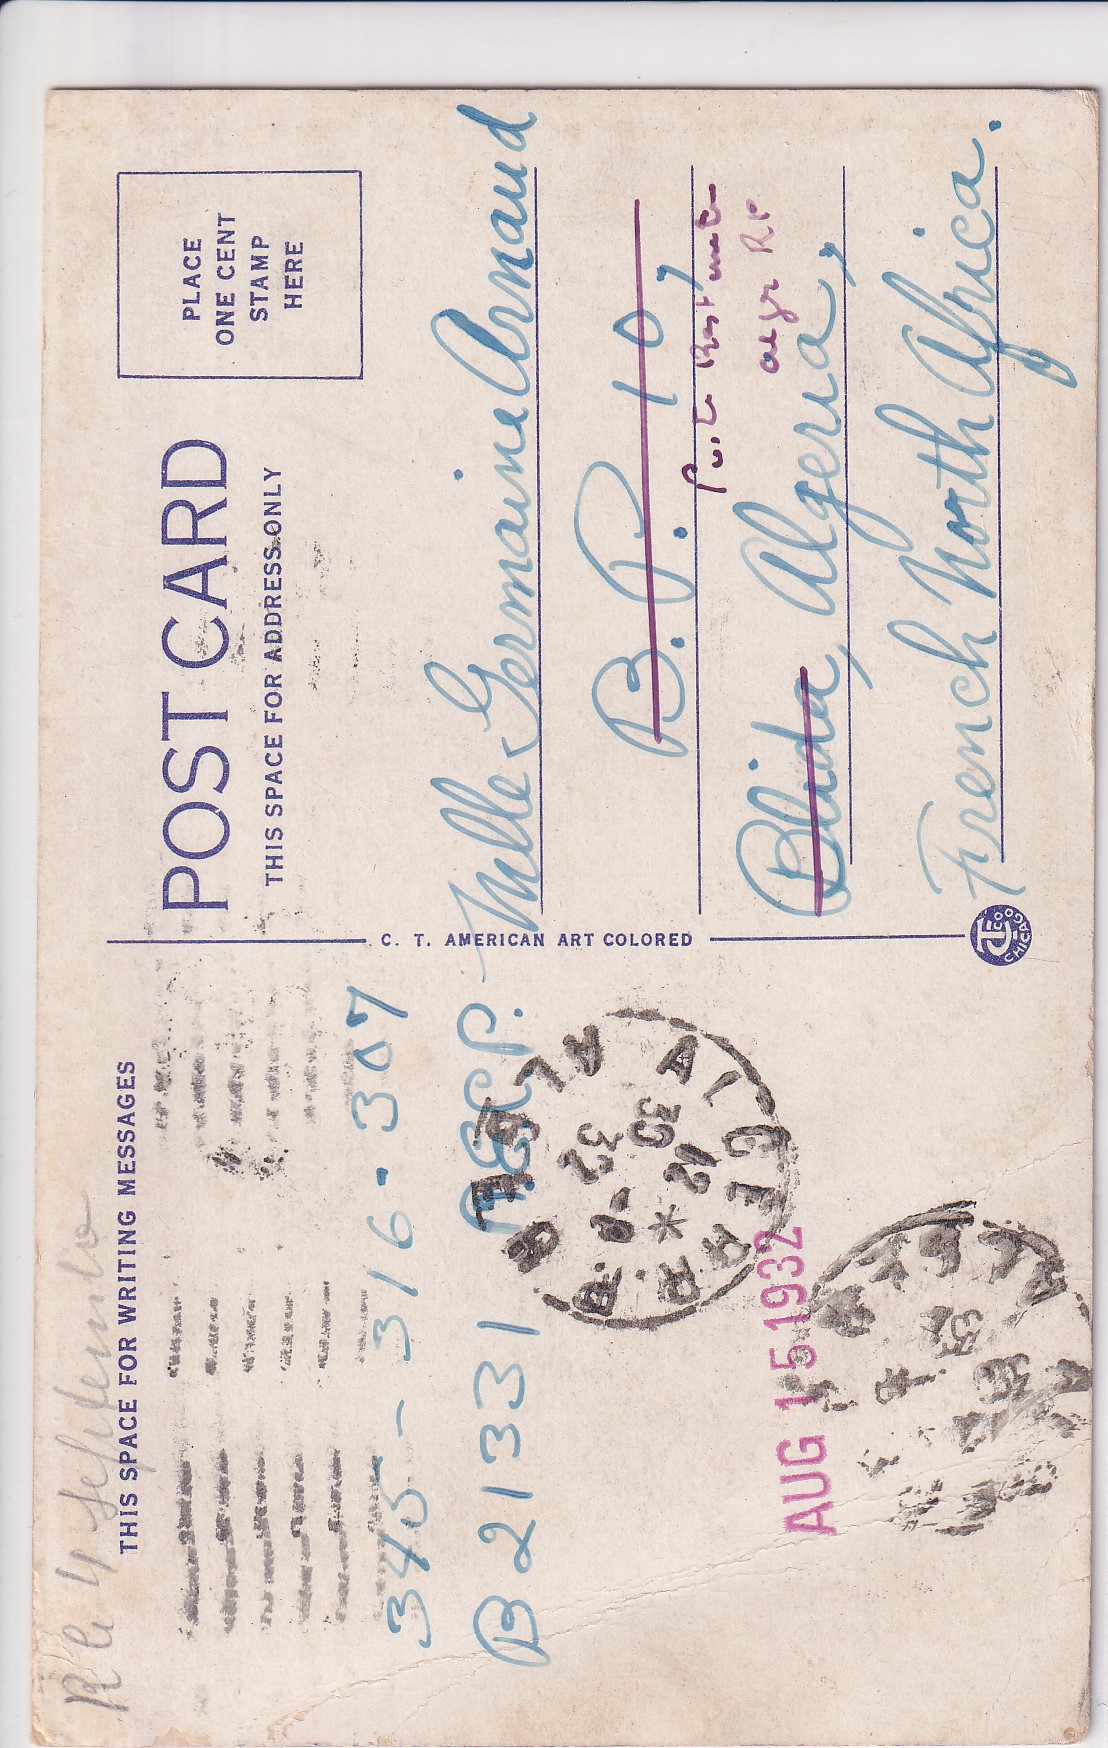 Rle 4 Septembre
THIS SPACE FOR WRITING MESSAGES
345-316.307
B 21331 A.E.C.P.
ALGER R.P.
ALGER R.P.
*
12
30
8
32
AUG 15 1932
C. T. AMERICAN ART COLORED
CHICAGO
POST CARD
THIS SPACE FOR ADDRESS ONLY
PLACE
ONE CENT
STAMP
HERE
Mlle Germaine Arnaud
B. P. 107
Poste Restante
Alger RP
Blida, Algeria,
French North Africa.